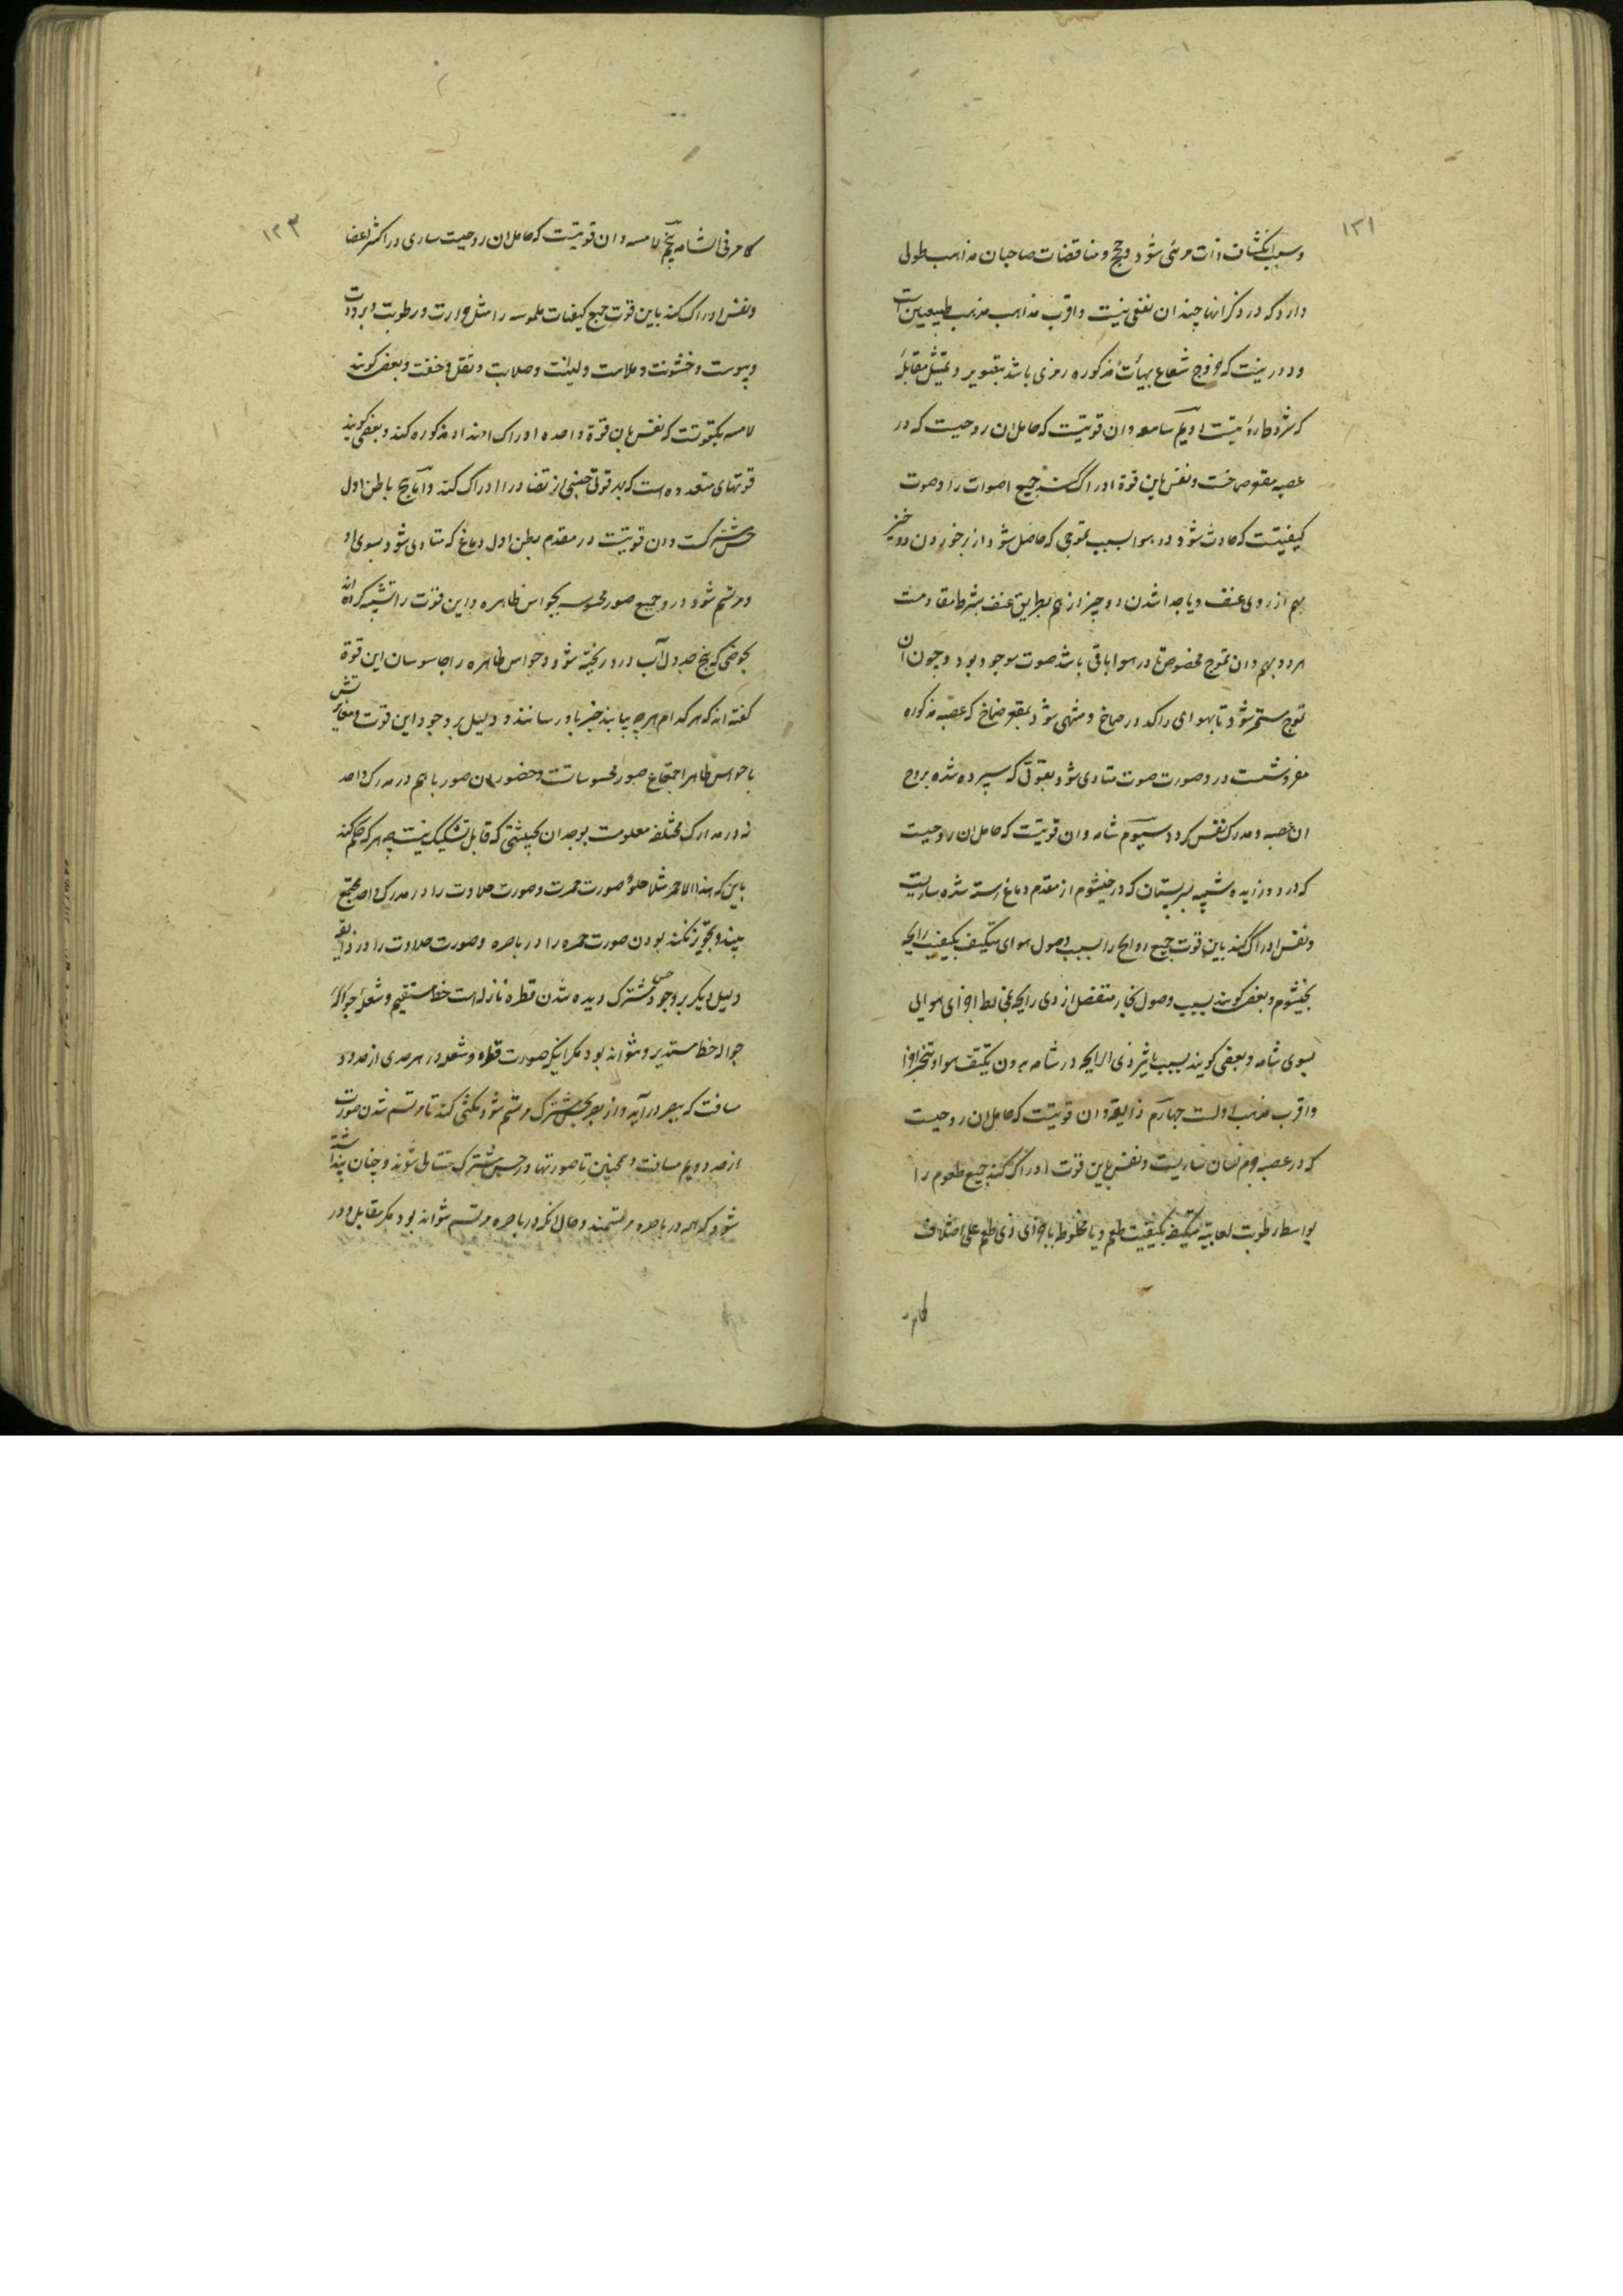 ١٢١
و سبب انکشاف ذات مرئی شود و حجج و مناقضات صاحبان مذاهب طولی
دارد که در ذکر انها چندان نفعی نیست و اقرب مذاهب مذهب طبیعیین است
و دور نیست که خروج شعاع بهیأت مذکوره رمزی باشد بتصویر و تمثیل مقابلهٔ
که شرط رؤیتست دویم سامعه و ان قوتیست که حامل ان روحیست که در
عصبه مقعر صماخست و نفس باین قوة ادراک کند جمیع اصوات را و صوت
کیفیتست که حادث شود در هوا بسبب تموجی که حاصل شود از بر خوردن دو چیز
بهم از روی عنف و یا جدا شدن دو چیز از هم بطریق عنف بشرط مقاومت
هر دو بهم و ان تموج مخصوص تا در هوا باقی باشد صوت موجود بود و چون ان
تموج مستمر شود تا بهوای راکد در صماخ و منتهی شود بمقعر صماخ که عصبه مذکوره
مفروشست در و صورت صوت متادی شود بقوتی که سپرده شده بروح
ان عصبه و مدرک نفس کردد سیوم شامه و ان قوتیست که حامل ان روحیست
که در دو زایده شبیه بسر پستان که در خیشوم از مقدم دماغ رسته شده ساریست
و نفس ادراک کند باین قوت جمیع روایح را بسبب وصول هوای متکیف بکیفیت رایحه
بخیشوم و بعضی کویند بسبب وصول بخار منفصل از ذی رایحه مخالط اجزای هوایی
بسوی شامه و بعضی کویند بسبب تاثیر ذی الرایحه در شامه بدون تکیف هوا و تبخر اجزا
و اقرب مذهب اولست چهارم ذایقه و ان قوتیست که حامل ان روحیست
که در عصبه جرم لسان ساریست و نفس باین قوت ادراک کند جمیع طعوم را
بواسطه رطوبت لعابیه متکیف بکیفیت طعم و یا مخلوط باجزای ذی طعم علی اختلاف
کامر
١٢٣
کامر فی الشامه پنجم لامسه و ان قوتیست که حامل ان روحیست ساری در اکثر اعضا
و نفس ادراک کند باین قوت جمیع کیفیات ملموسه را مثل حرارت و رطوبت و برودت
و یبوست و خشونت و ملاست و لینت و صلابت و ثقل و خفت و بعضی کویند
لامسه یکقوتست که نفس بان قوة واحده ادراک اضداد مذکوره کند و بعضی کویند
قوتهای متعدده است که بهر قوتی جنسی از تضاد را ادراک کند و اما پنج باطن اول
حس مشترکست و ان قوتیست در مقدم بطن اول دماغ که متادی شود بسوی او
و مرتسم شود در و جمیع صور محسوسه بحواس ظاهره و این قوت را تشبیه کرده اند
بحوضی که پنج جدول آب در و ریخته شود و حواس ظاهره را جاسوسان این قوة
کفته اند که هر کدام هر چه بیابند خبر باو رسانند و دلیل بر وجود این قوت و مغایرتش
با حواس ظاهر اجتماع صور محسوساتست و حضور ان صور با هم در مدرک واحد
نه در مدارک مختلفه معلومست بوجدان بحیثیتی که قابل تشکیک نیست چه هر که حکم کند
باین که هذا الاحمر مثلا حلو صورت حمرت و صورت حلاوت را در مدرک واحد مجتمع
بیند و تجویز نکند بودن صورت حمره را در باصره و صورت حلاوت را در ذایقه
دلیل دیکر بر وجود حس مشترک دیده شدن قطره نازله است خط مستقیم و شعلهٔ جواله
جواله خط مستدیر و نتواند بود مکر اینکه صورت قطره و شعله در هر حدی از حدود
مسافت که ببصر در آید و از بصر بحس مشترک مرتسم شود مکثی کند تا مرتسم شدن صورت
از حد دویم مسافت و همچنین تا صورتها در حس مشترک متتالی شوند و چنان پنداشته
شود که همه در باصره مرتسمند و حال انکه در باصره مرتسم نتواند بود مکر مقابل و در